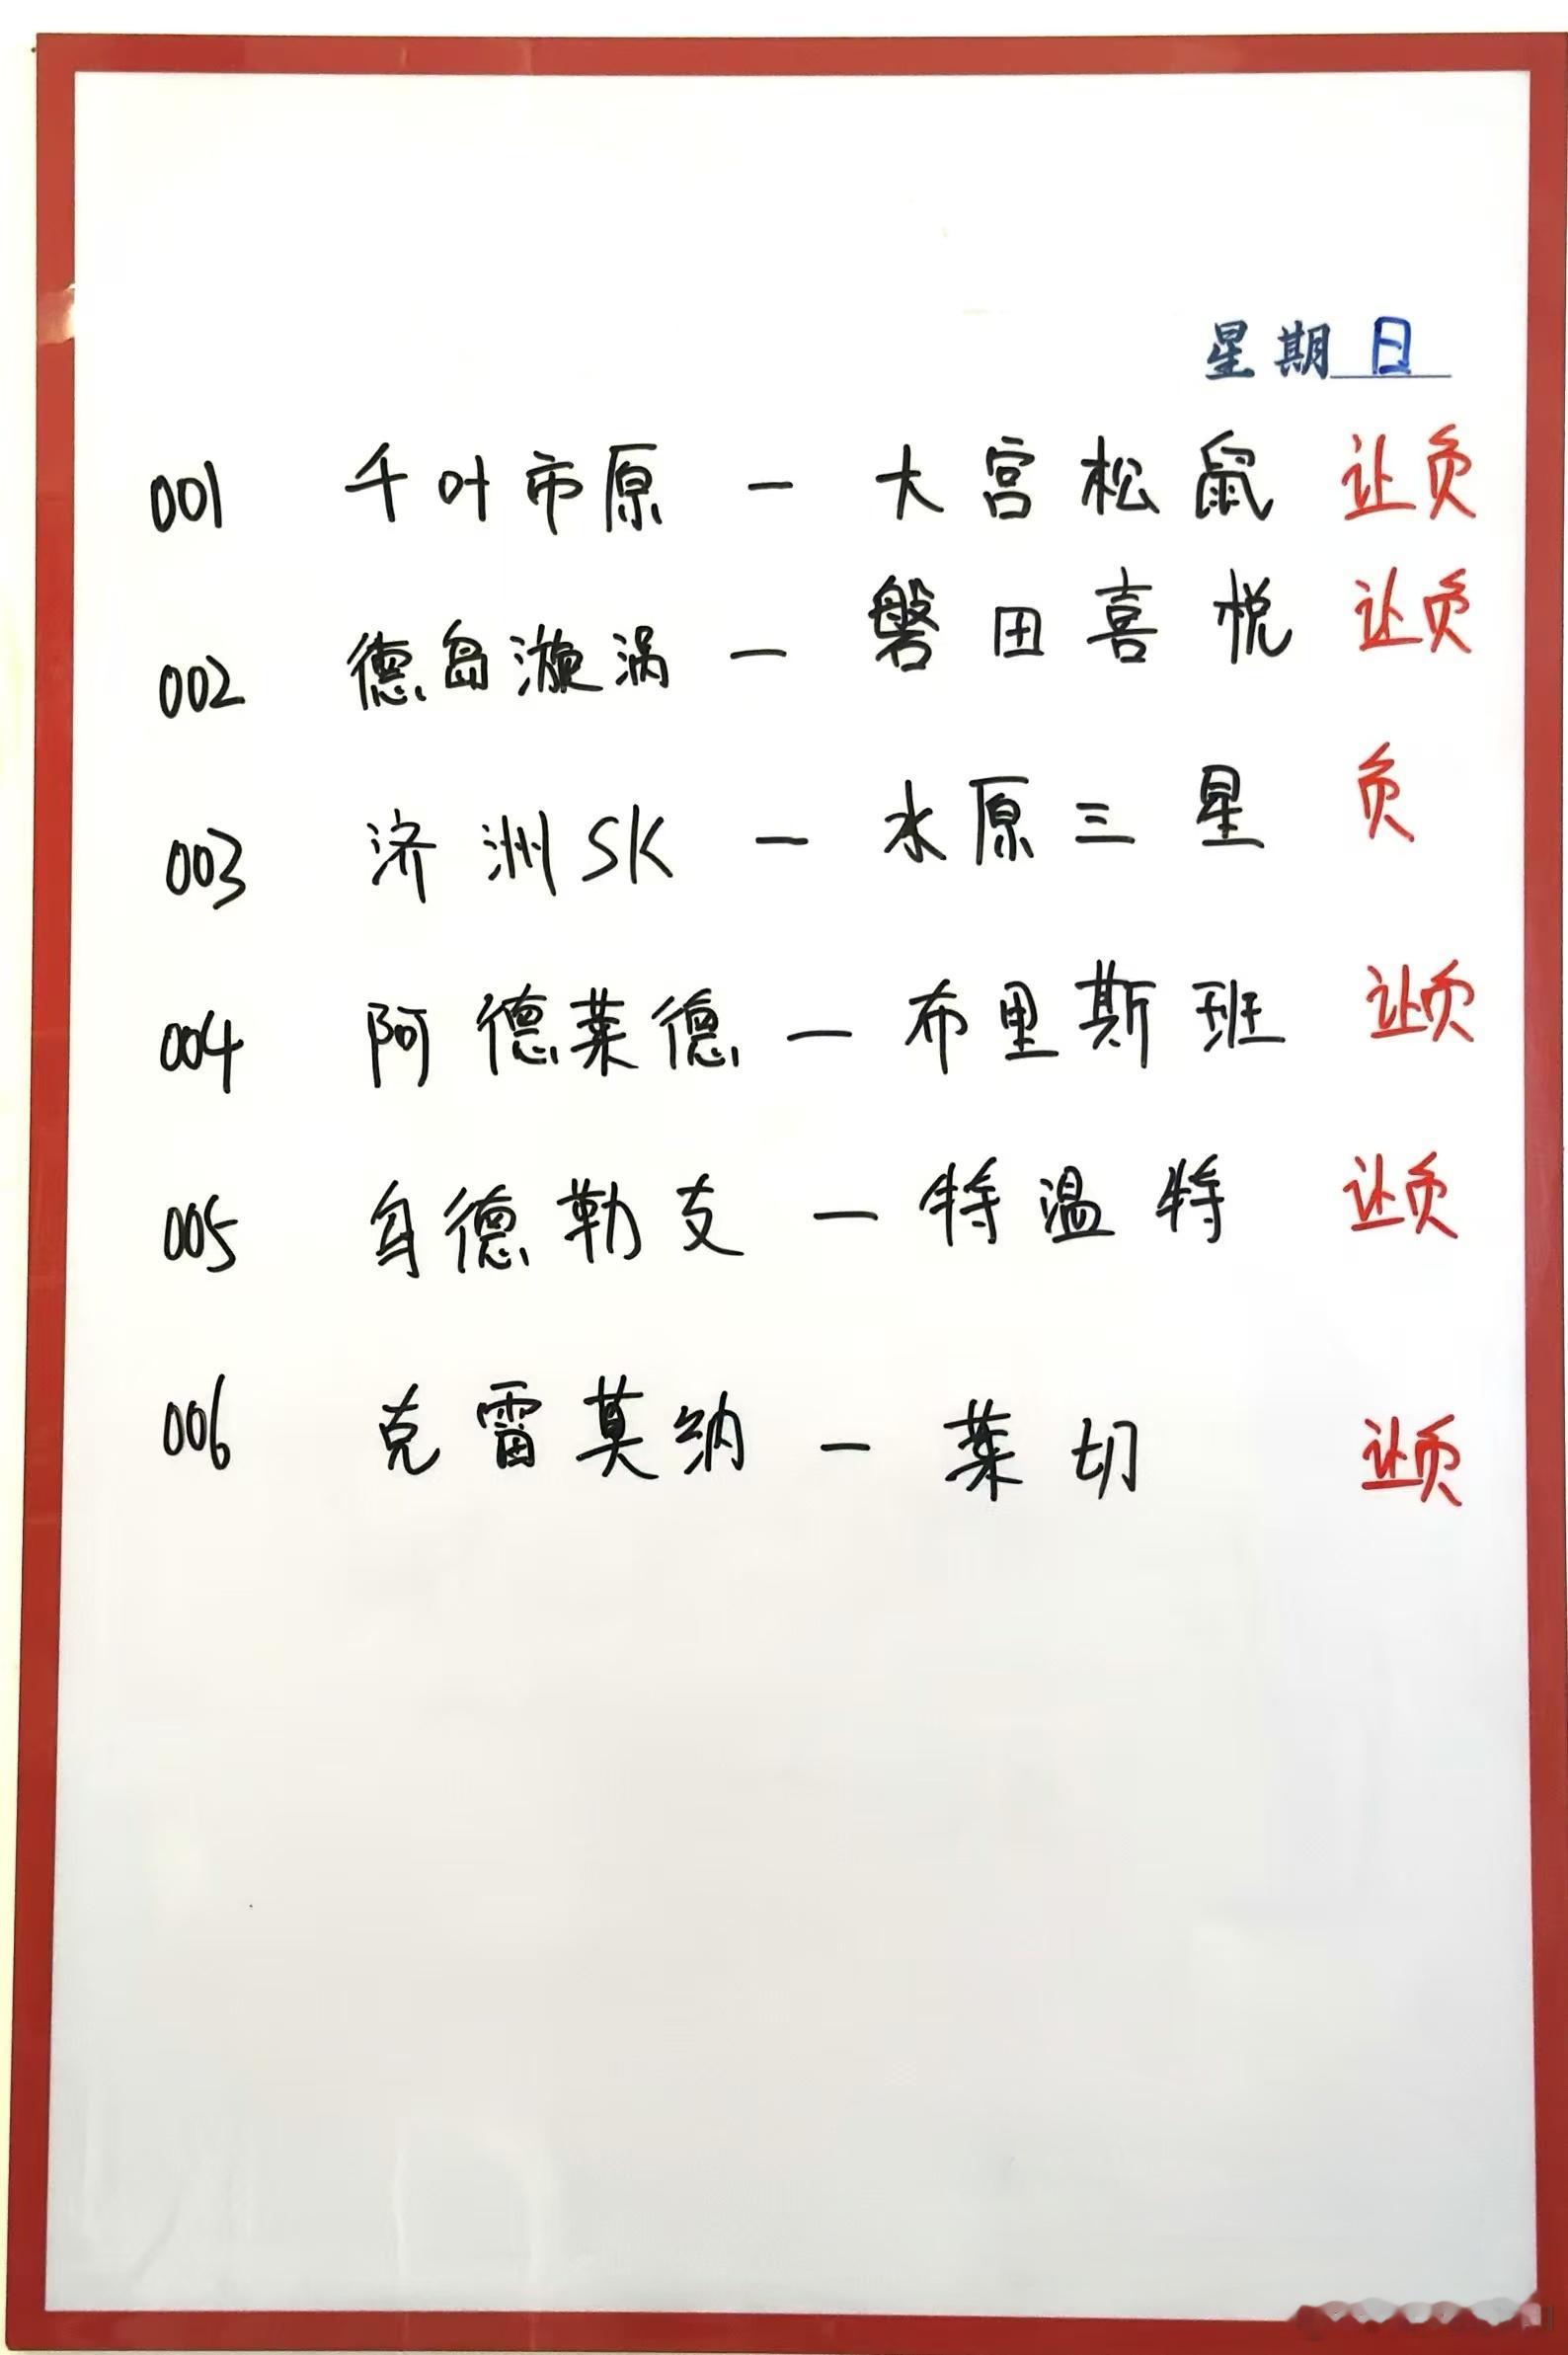 星期日
001 千叶市原 - 大宫松鼠 让负
002 德岛漩涡 - 磐田喜悦 让负
003 济洲SK - 水原三星 负
004 阿德莱德 - 布里斯班 让负
005 乌德勒支 - 特温特 让负
006 克雷莫纳 - 莱切 让负